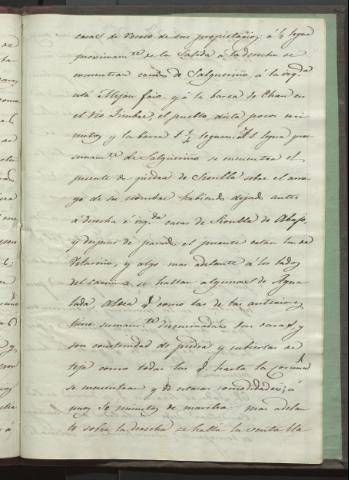 casas de recreo de sus propietarios; á ½ legua
proximam.te de la salida á la derecha se
encuentran casas de Salgueiriño, á la izquierda
y á la barca de Chan en
el rio Tambre, el pueblo dista pocos mi-
nutos y la barca 1 ½ legua; á 1 legua pro-
simam.te de Salgueiriño se encuentra el
puente de piedra de Sionlla sobre el arro-
yo de su nombre habiendo dejado antes
á derecha é izq.da casas de Sionlla de Abajo,
y despues de pasado el puente estan las de
y algo mas adelante á los lados
del camino se hallan algunas de Agua-
lada, aldea q. como las de las anteriores,
tiene sumam.te diseminadas sus casas, y
son construidas de piedra y cubiertas de
teja como todas las q. hasta la Coruña
se encuentran y de escasas comodidades; á
muy 30 minutos de marcha mas adelan-
te sobre la derecha se halla la venta lla-